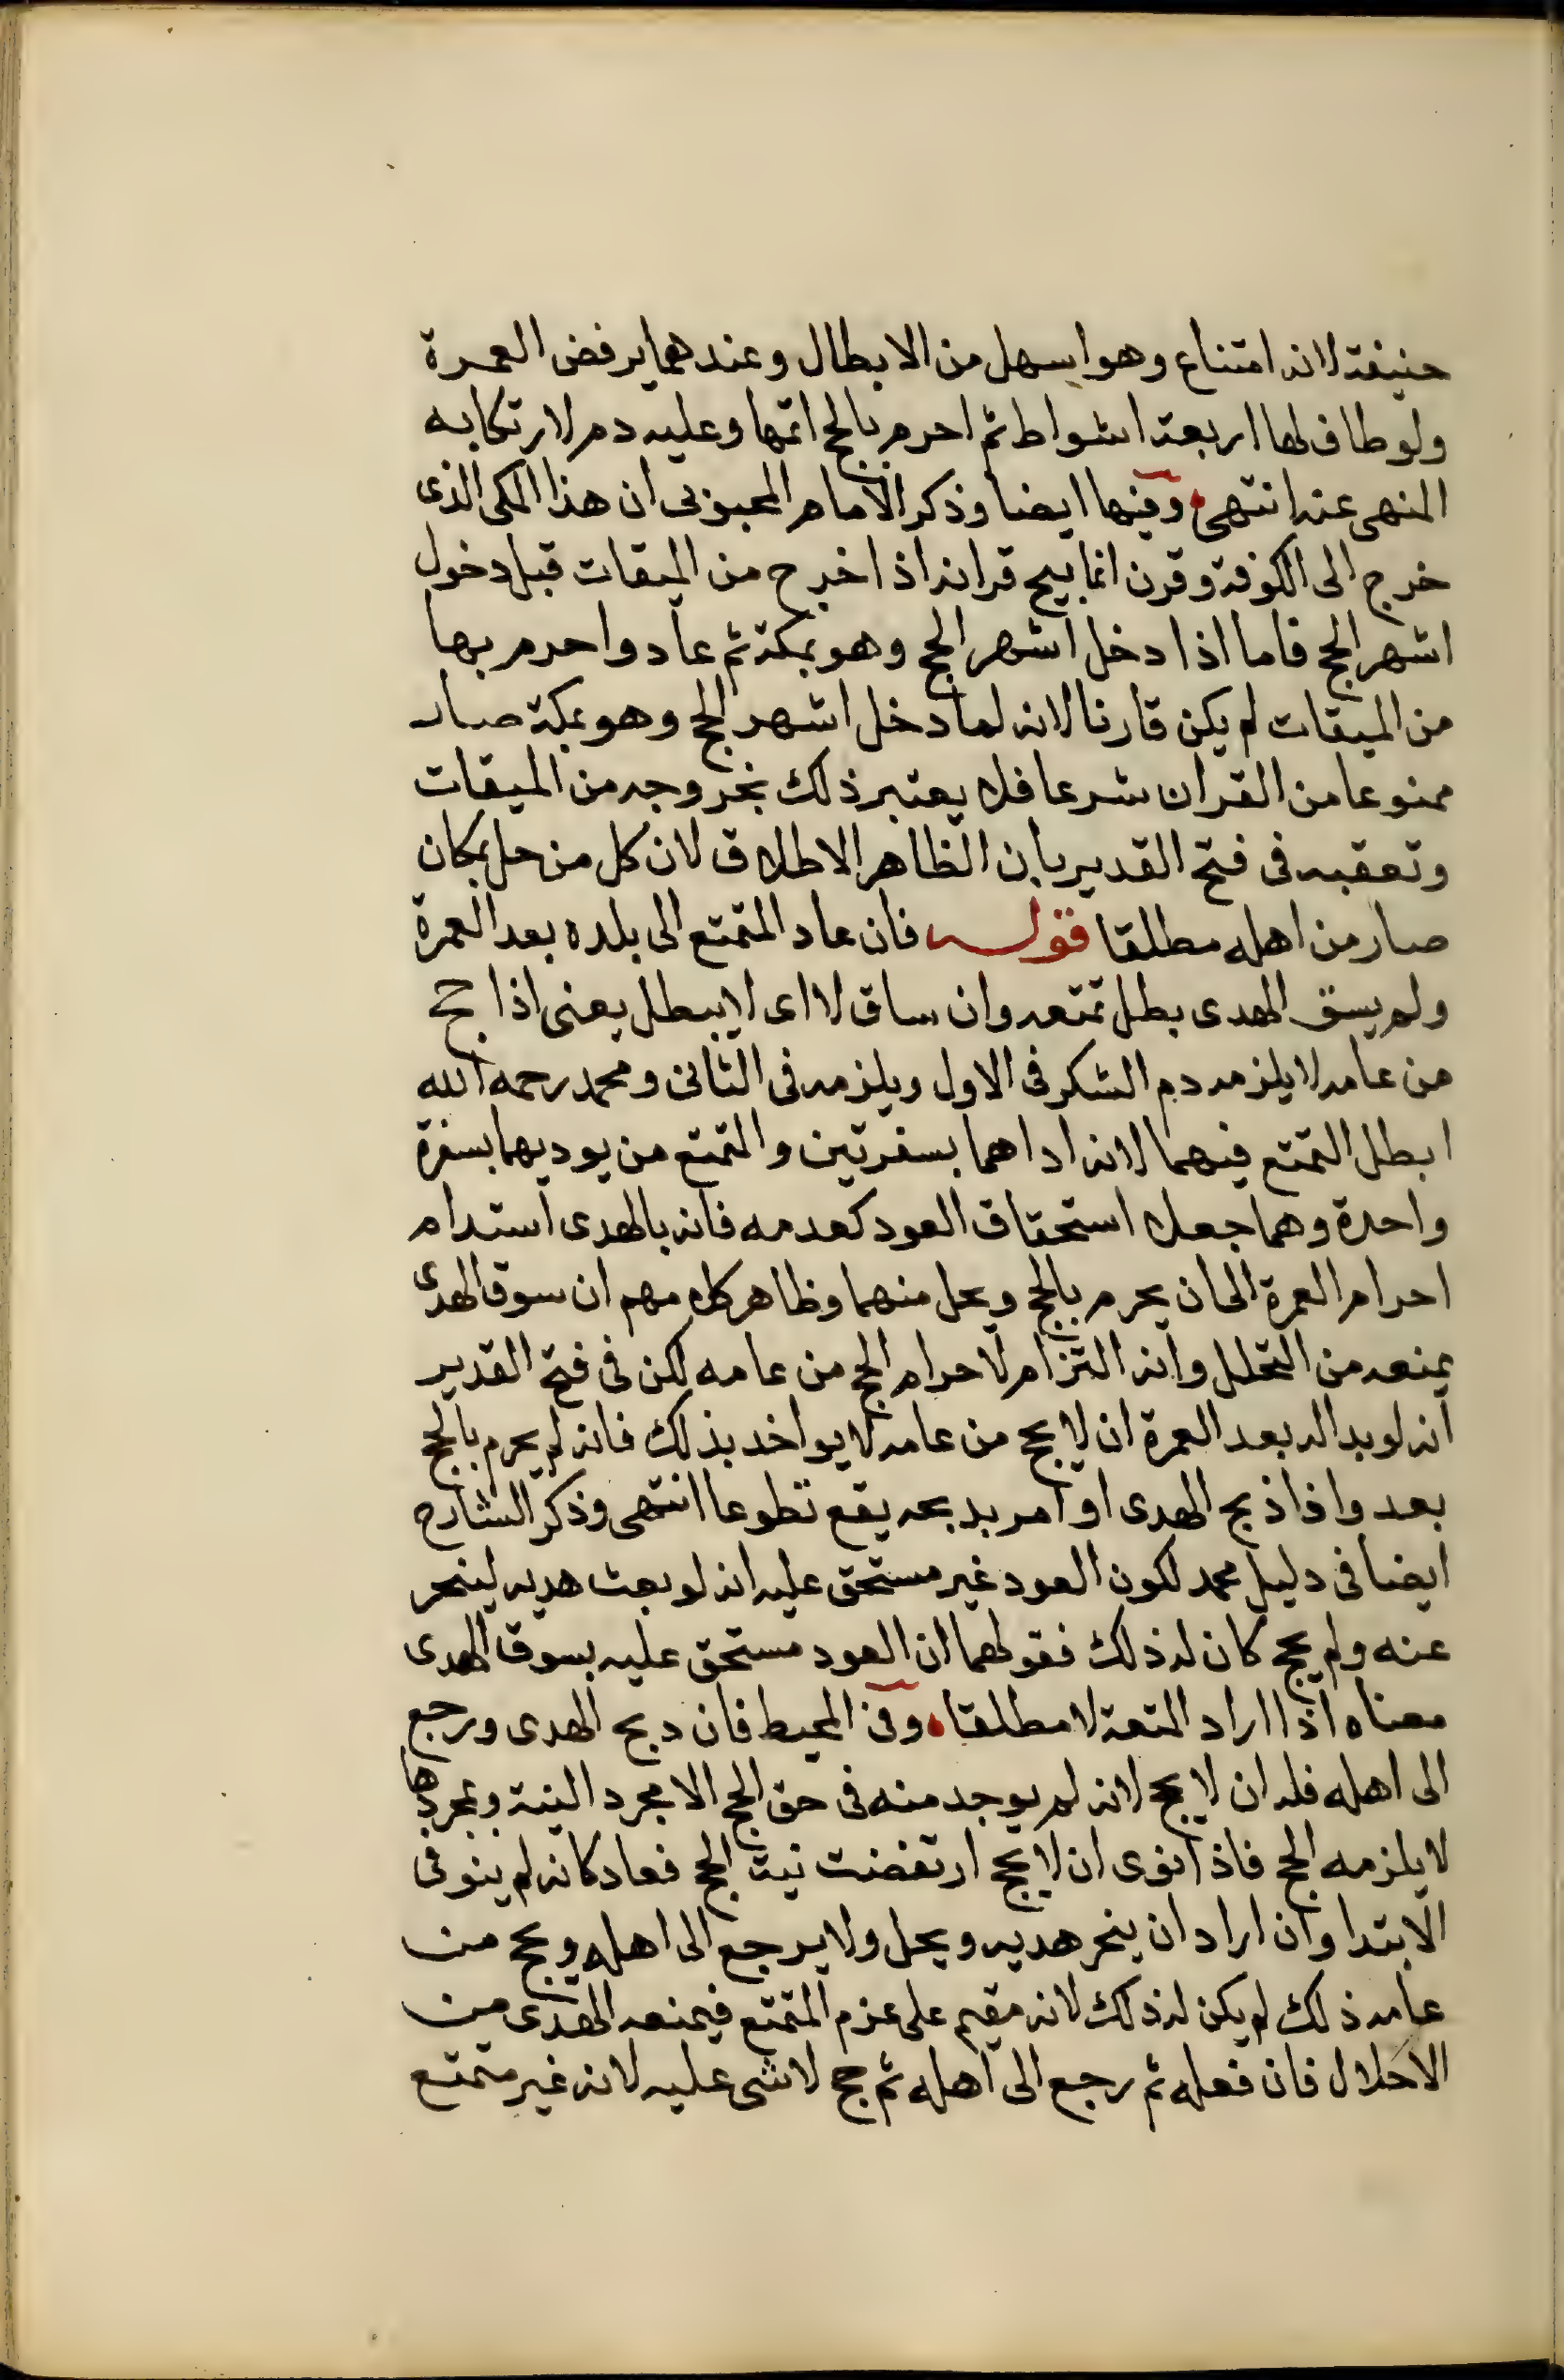 حنيفة لانه امتناع وهو اسهل من الابطال وعندهما يرفض العمرة
ولو طاف لها اربعة اشواط ثم احرم بالحج اتمها وعليه دم لارتكابه
المنهى عنه انتهى وفيها ايضا وذكر الامام المحبوبى ان هذا المكى الذى
خرج الى الكوفة وقرن انما يصح قرانه اذا خرج من الميقات قبل دخول
اشهر الحج فاما اذا دخل اشهر الحج وهو بمكة ثم عاد واحرم بها
من الميقات لم يكن قارنا لانه لما دخل اشهر الحج وهو بمكة صار
ممنوعا من القران شرعا فلا يعتبر ذلك بخروجه من الميقات
وتعقبه فى فتح القدير بان الظاهر الاطلاق لان كل من حل بمكان
صار من اهله مطلقا قوله فان عاد المتمتع الى بلده بعد العمرة
ولم يسق الهدى بطل تمتعه وان ساق لا اى لا يبطل يعنى اذا حج
من عامه لا يلزمه دم الشكر فى الاول ويلزمه فى الثانى ومحمد رحمه الله
ابطل التمتع فيهما لانه اداهما بسفرتين والتمتع من يوديهما بسفرة
واحدة وهما جعلا استحقاق العود كعدمه فانه بالهدى استدام
احرام العمرة الى ان يحرم بالحج ويحل منهما وظاهر كلامهم ان سوق الهدى
يمنعه من التحلل وانه التزام لاحرام الحج من عامه لكن فى فتح القدير
انه لو بدا له بعد العمرة ان لا يحج من عامه لا يواخد بذلك فانه لم يحرم بالحج
بعد واذا ذبح الهدى او امر بذبحه يقع تطوعا انتهى وذكر الشارح
ايضا فى دليل محمد لكون العود غير مستحق عليه انه لو بعث هديه لينحر
عنه ولم يحج كان له ذلك فقولهما ان العود مستحق عليه بسوق الهدى
معناه اذا اراد المتعة لا مطلقا وفى المحيط فان دبح الهدى ورجع
الى اهله فله ان لا يحج لانه لم يوجد منه فى حق الحج الا مجرد النية وبمجردها
لا يلزمه الحج فاذا نوى ان لا يحج ارتفضت نية الحج فعاد كانه لم ينو فى
الابتدا وان اراد ان ينحر هديه ويحل ولا يرجع الى اهله ويحج من
عامه ذلك لم يكن له ذلك لانه مقيم على عزم المتمتع فيمنعه الهدى من
الاحلال فان فعله ثم رجع الى اهله ثم حج لا شى عليه لانه غير متمتع